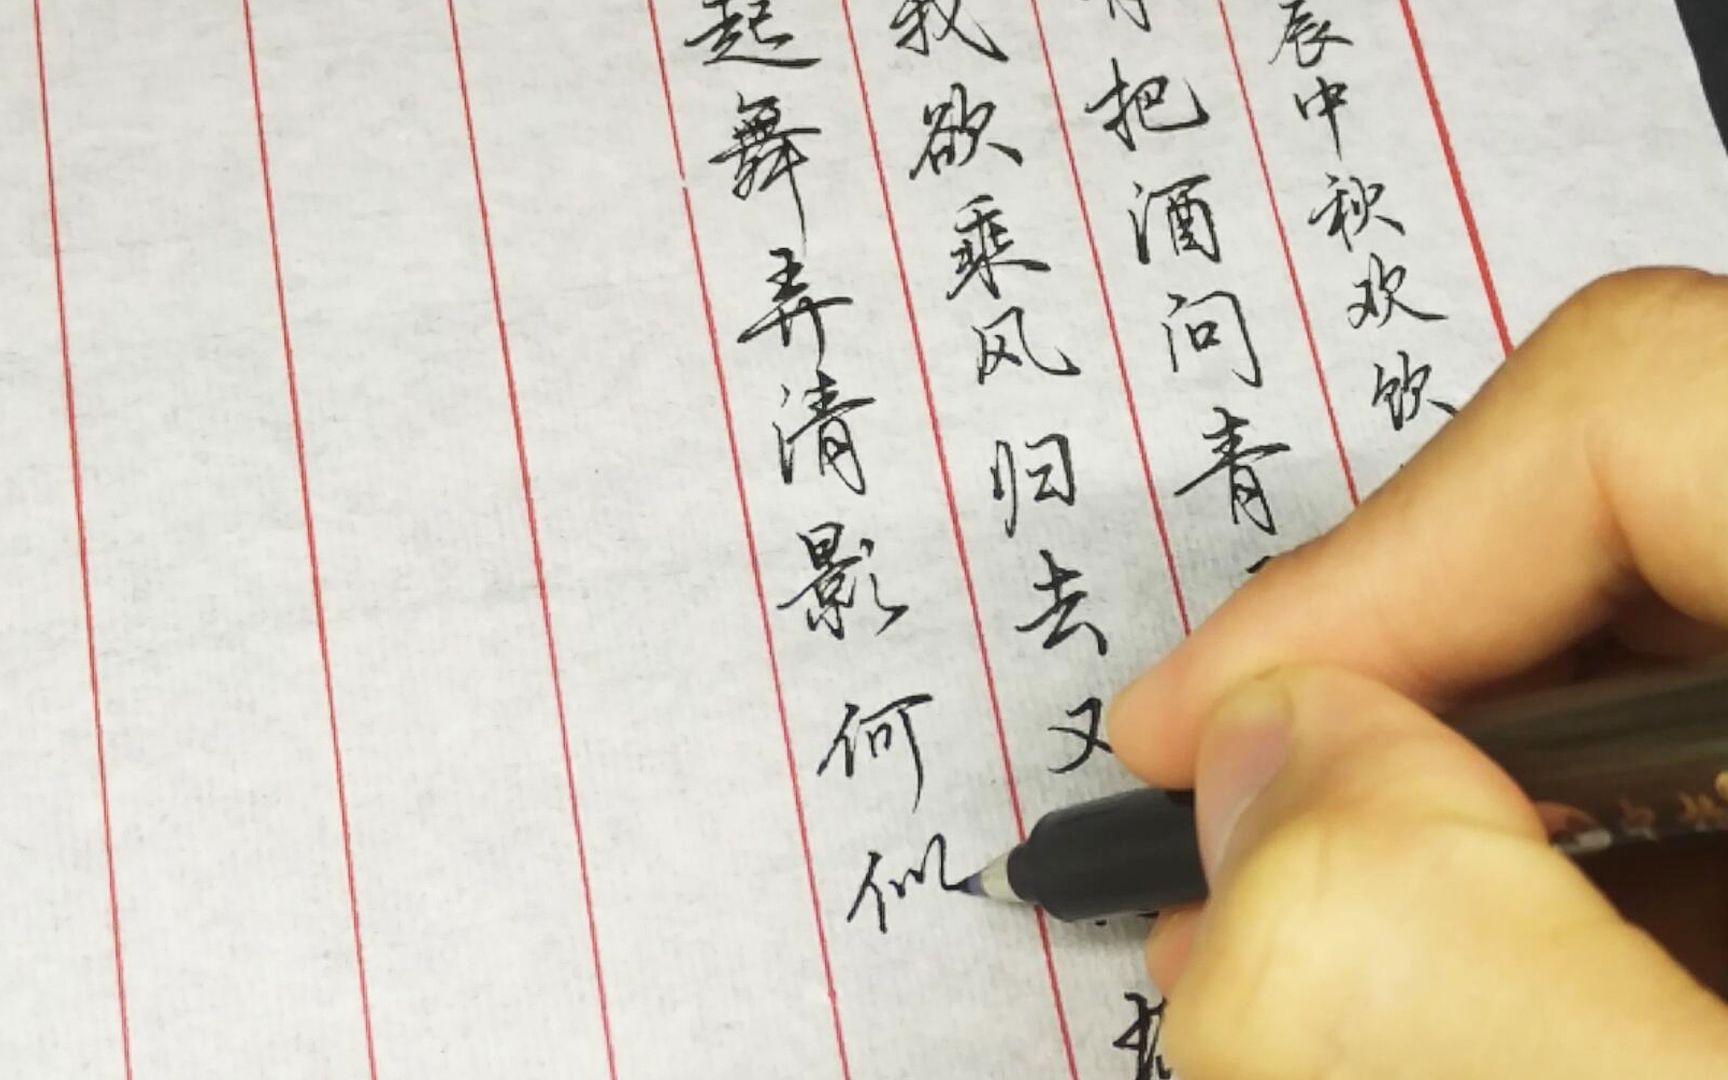 辰中秋欢饮
把酒问青
我欲乘风归去又
起舞弄清影何似